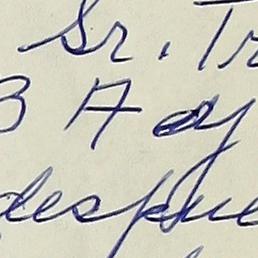 Sr. Tr
3 A ay
despue